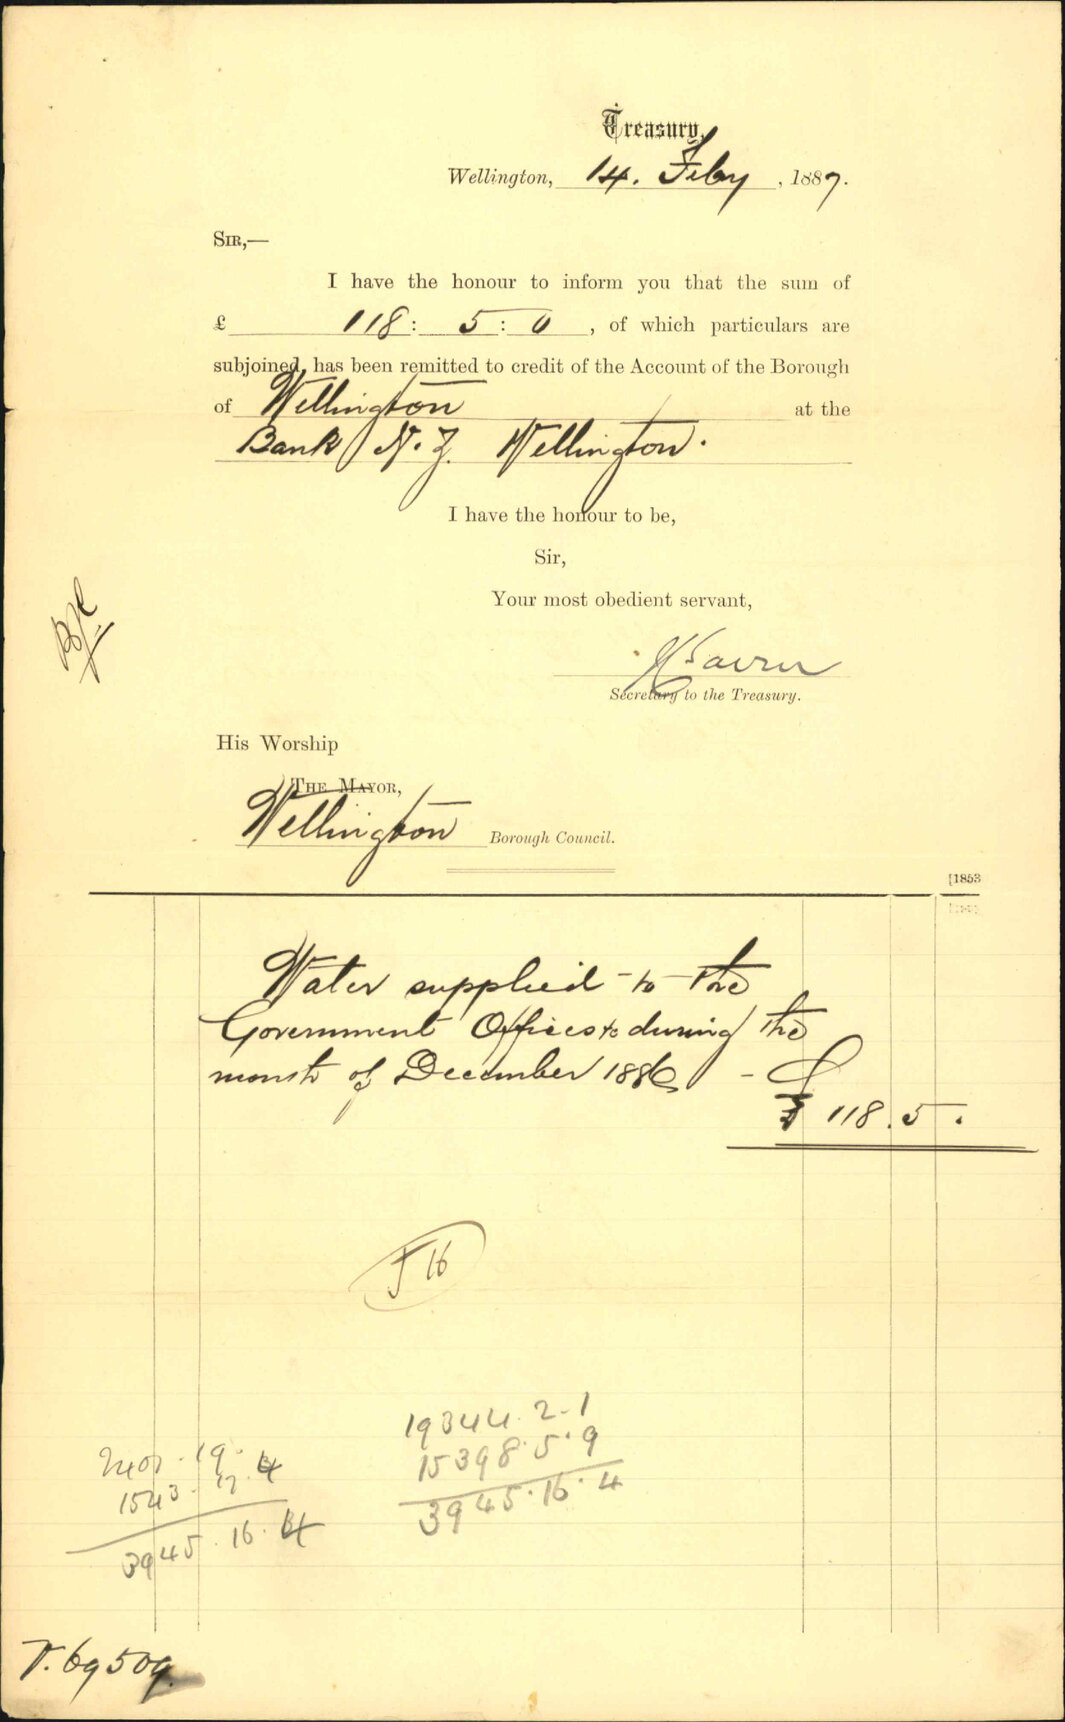 Treasury,
Wellington, 14. Feby, 1887.
SIR,—
I have the honour to inform you that the sum of
£ 118 : 5 : 0, of which particulars are
subjoined, has been remitted to credit of the Account of the Borough
of Wellington at the
Bank N. Z. Wellington.
I have the honour to be,
Sir,
Your most obedient servant,
Secretary to the Treasury.
His Worship
THE MAYOR,
Wellington Borough Council.
[1853
Water supplied to the
Government Offices during the
month of December 1886 -
£ 118. 5 .
19344. 2. 1
15398. 5. 9
3945. 16. 4
19. 4
1543. 17. 4
3945. 16. 4
69509